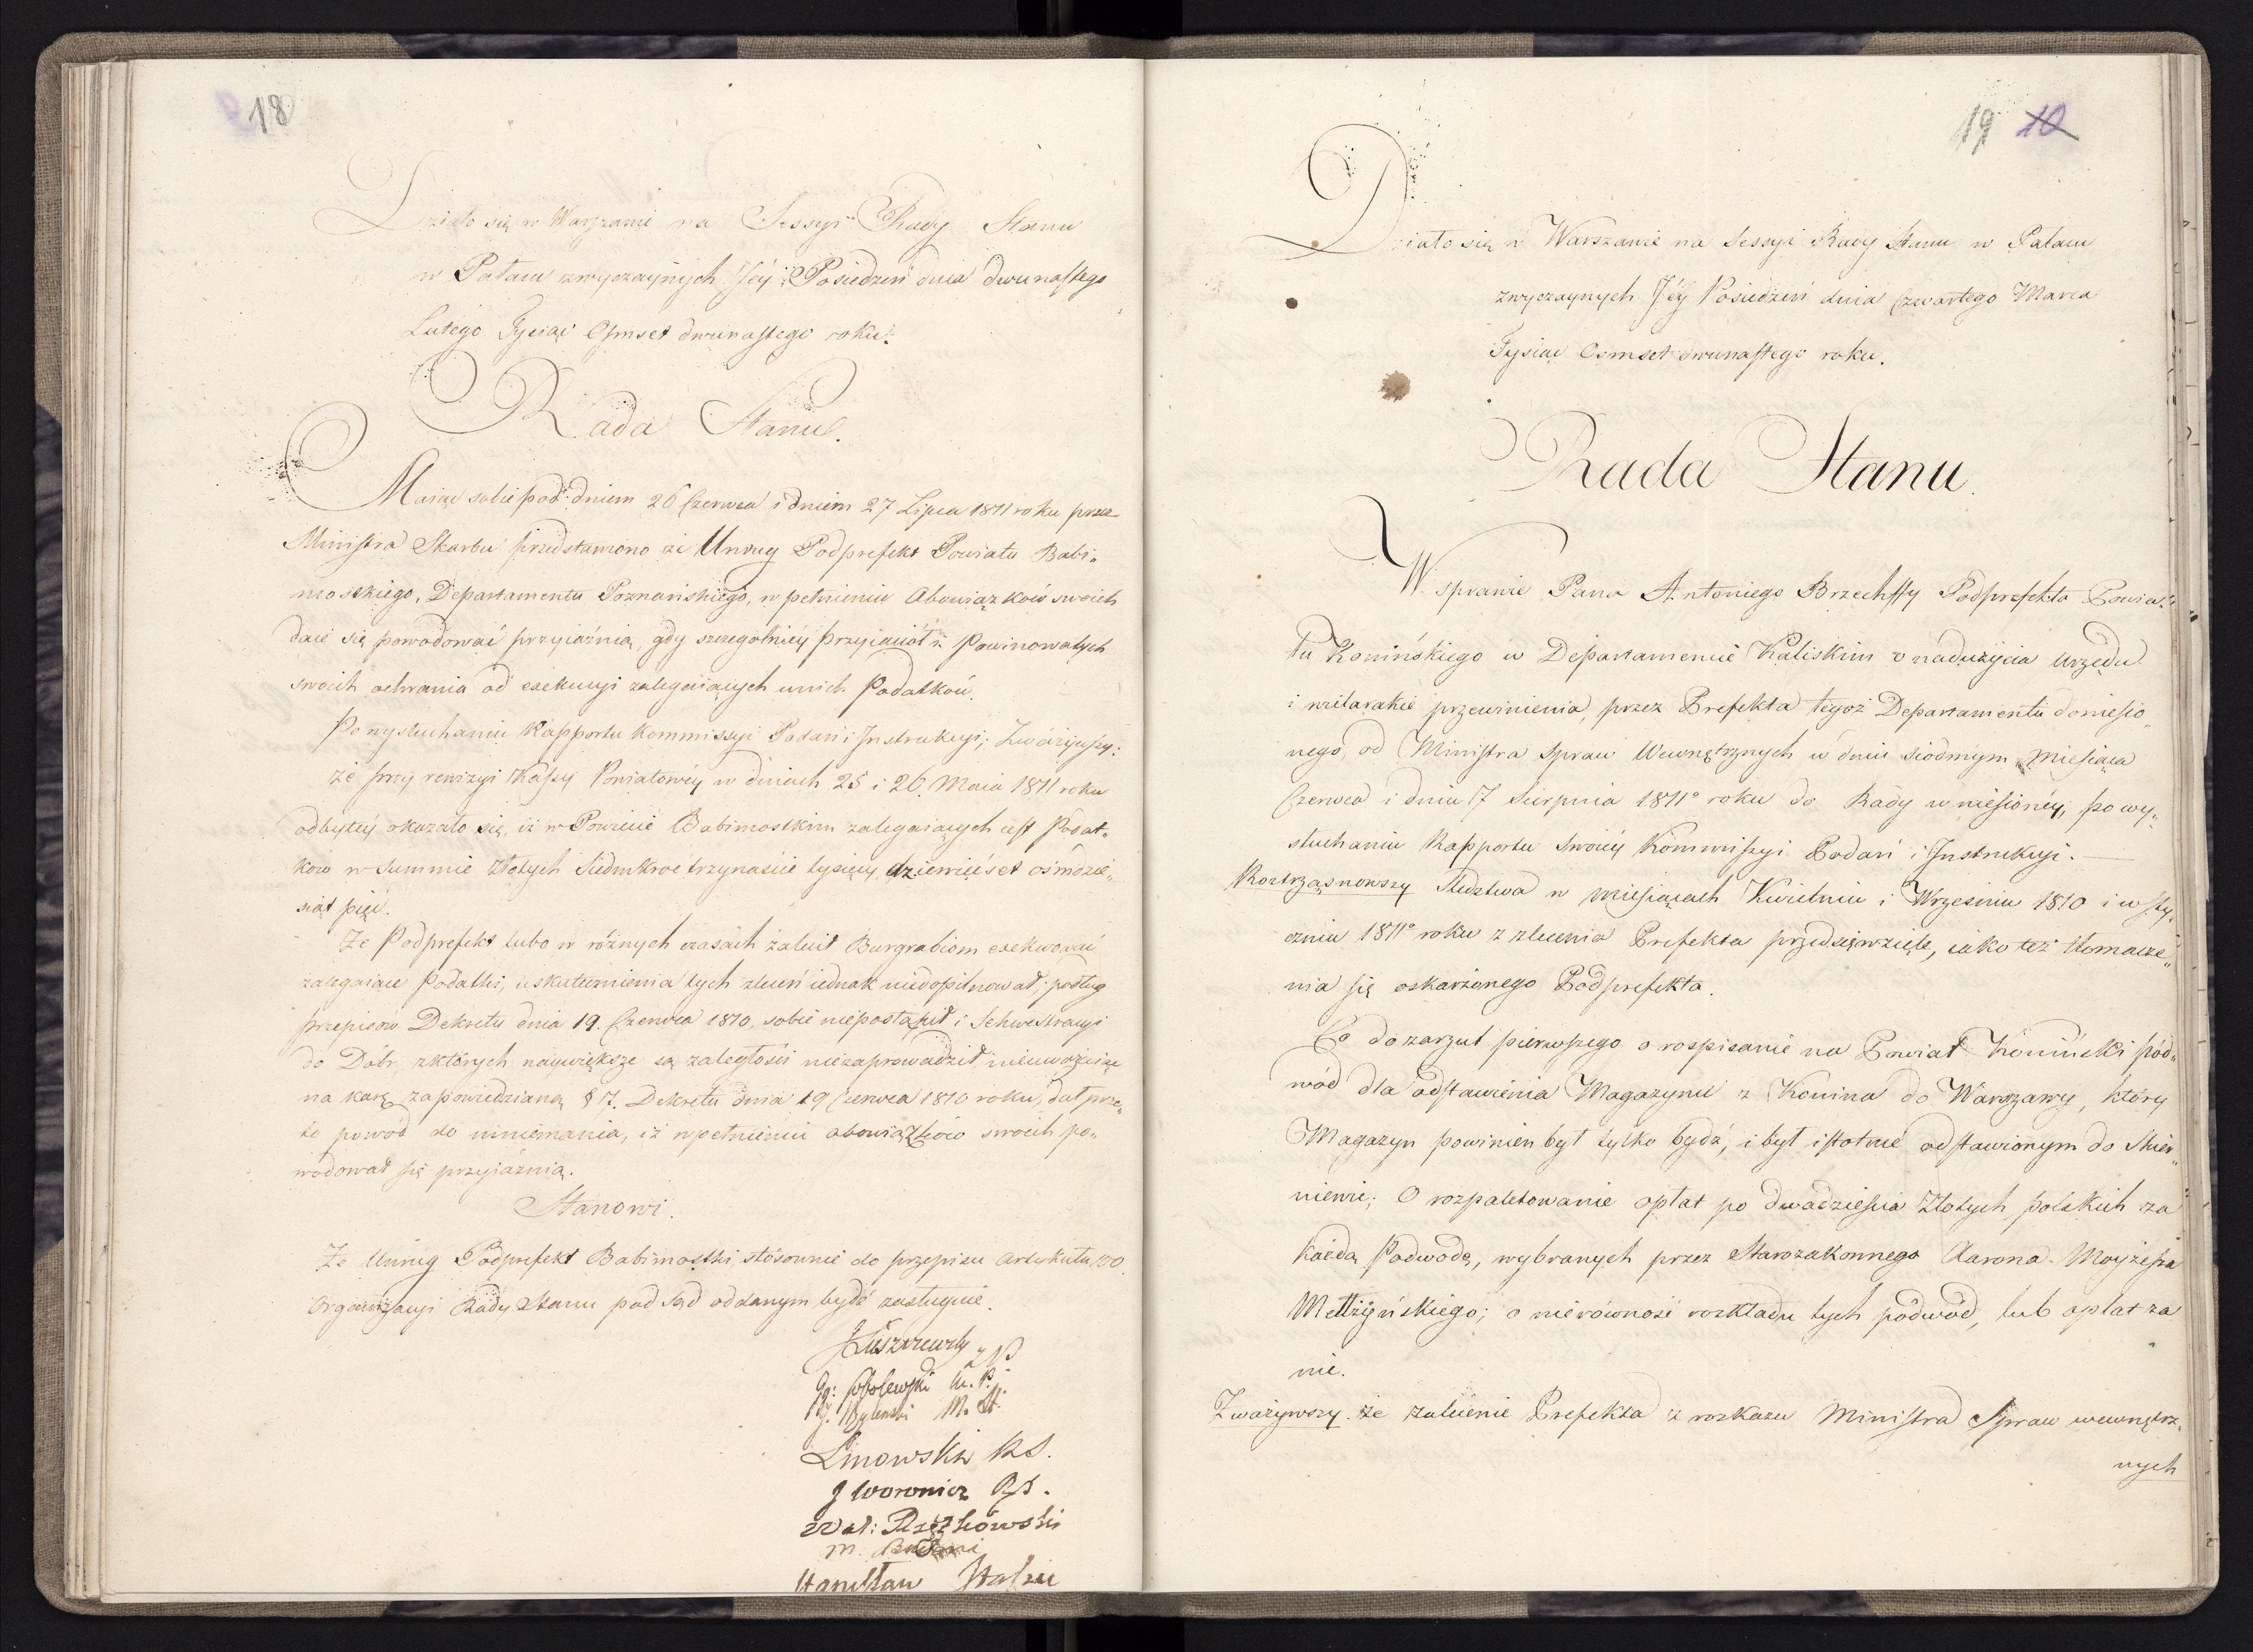 18
Działo się w Warszawie na Sessyi Rady Stanu
w Pałacu zwyczaynych Jéy Posiedzeń dnia dwunastego
Lutego Tysiąc Osmset dwunastego roku.
Rada Stanu.
Maiąc sobie pod dniem 26 Czerwca i dniem 27 Lipca 1811 roku przez
Ministra Skarbu przedstawiono że Unrug Podprefekt Powiatu Babi„
mostkiego, Departamentu Poznańskiego, w pełnieniu Obowiązków swoich
daie się powodować przyiaźnią, gdy szczególniéy przyiaciół i Powinowatych
swoich ochrania od exekucyi zalegaiących u nich Podatków.
Po wysłuchaniu Rapportu Kommissyi Podań i Instrukcyi; Zważywszy:
że przy rewizyi Kassy Powiatowéy w dniach 25 i 26 Maia 1811 roku
odbytéy okazało się, iż w Powiecie Babimostkim zalegaiących iest Podat„
ków w Summie Złotych Siedmkroć trzynaście tysięcy dziewięćset ośmdzie„
siąt pięć.
Że Podprefekt lubo w różnych czasach zalecił Burgrabiom exekwować
zalegaiące Podatki, uskutecznienia tych zleceń iednak niedopilnował; podług
przepisów Dekretu dnia 19. Czerwca 1810, sobie niepostąpił i Sekwestracyi
do Dóbr, z których naywiększe są zaległości niezaprowadził, nieuważaiąc
na karę zapowiedzianą § 17. Dekretu dnia 19 Czerwca 1810 roku, dał prze„
to powod do mniemania, iż w pełnieniu obowiązków swoich po„
wodował się przyiaźnią.
Stanowi.
Że Unrug Podprefekt Babimostki, stósownie do przepisu Artykułu
Organizacyi Rady Stanu pod Sąd oddanym bydź zasługuie.
J Łuszczewsky z P
Ig: Sobolewski M. P.
M. St.
Linowski R S.
J Woronicz R S.
Wal: Rzętkowski
M.
Stanisław Staszic
19 10
Działo się w Warszawie na Sessyi Rady Stanu w Pałacu
zwyczaynych Jéy Posiedzeń dnia Czwartego Marca
Tysiąc Osmset dwunastego roku.
Rada Stanu.
W sprawie Pana Antoniego Brzechffy Podprefekta Powia„
tu Konińskiego w Departamencie Kaliskim o nadużycia Urzędu
i wielorakie przewinienia, przez Prefekta tegoż Departamentu doniesio„
nego, od Ministra Spraw Wewnętrznych w dniu siodmym Miesiąca
Czerwca i dniu 17 Sierpnia 1811° roku do Rady wniesionéy, po wy„
słuchaniu Rapportu swoiéy Kommissyi Podań i Instrukcyi. —
Roztrząsnowszy śledztwa w miesiącach Kwietniu i Wrześniu 1810 i w Sty„
czniu 1811° roku z zlecenia Prefekta przedsięwzięte, iako też tłomacze„
nia się oskarżonego Podprefekta.
Co do zarzut pierwszego o rospisanie na Powiat Koniński pód„
wód dla odstawienia Magazynu z Konina do Warszawy, który
Magazyn powinien był tylko bydź, i był istotnie odstawionym do Skier„
niewic; O rozpaletowanie opłat po dwadzieścia Złotych polskich za
każdą Podwodę, wybranych przez Starozakonnego Aarona Moyżesza
Mettzyńskiego; o nierówność rozkładu tych pódwód, lub opłat za
nie.
Zważywszy. że zalecenie Prefekta z rozkazu Ministra Spraw wewnętrz„
nych